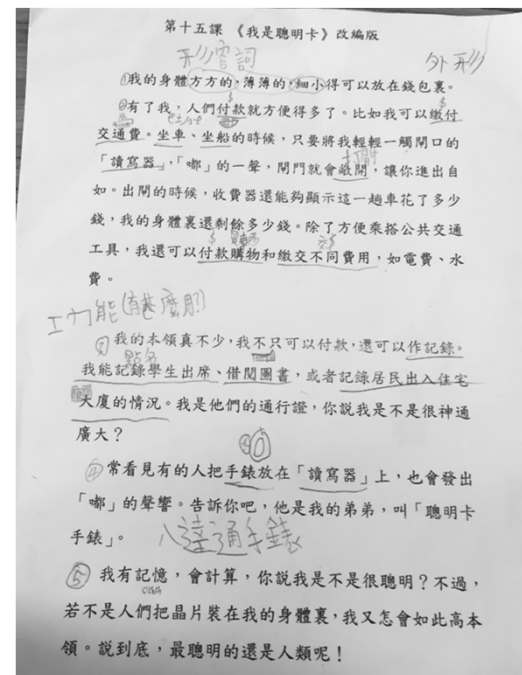 第十五課 《我是聰明卡》改編版
形容詞 外形
①我的身體方方的，薄薄的，細小得可以放在錢包裏。
②有了我，人們付款就方便得多了。比如我可以繳付
交通費。坐車、坐船的時候，只要將我輕輕一觸閘口的
「讀寫器」，「嘟」的一聲，閘門就會敞開，讓你進出自
如。出閘的時候，收費器還能夠顯示這一趟車花了多少
錢，我的身體裏還剩餘多少錢。除了方便乘搭公共交通
工具，我還可以付款購物和繳交不同費用，如電費、水
費。
③我的本領真不少，我不只可以付款，還可以作記錄。
點名
我能記錄學生出席、借閱圖書，或者記錄居民出入住宅
大廈的情況。我是他們的通行證，你說我是不是很神通
廣大？
④常看見有的人把手錶放在「讀寫器」上，也會發出
「嘟」的聲響。告訴你吧，他是我的弟弟，叫「聰明卡
手錶」。 八達通手錶
⑤我有記憶，會計算，你說我是不是很聰明？不過，
若不是人們把晶片裝在我的身體裏，我又怎會如此高本
領。說到底，最聰明的還是人類呢！